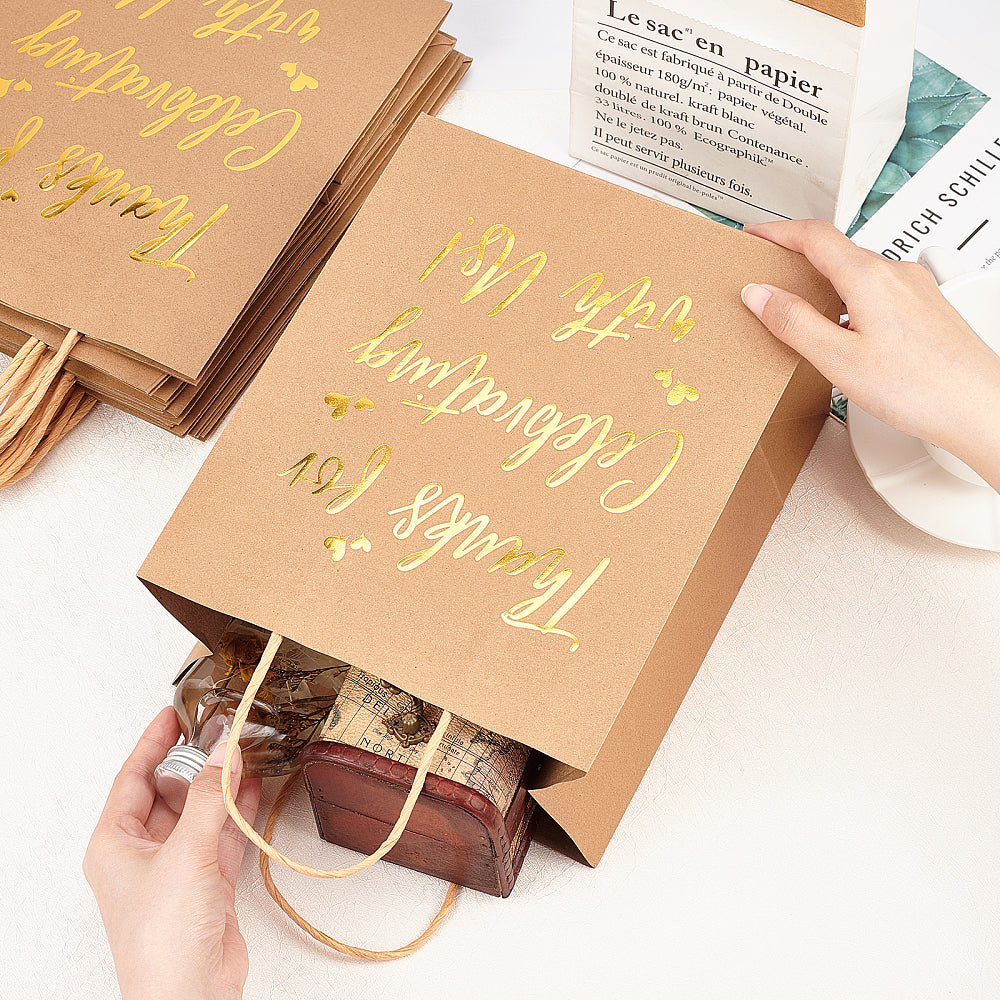 Thanks for
Celebrating
with Us!
Thanks for
Celebrating
with
Le sac #1 en papier
Ce sac est fabriqué à partir de Double
épaisseur 180g/m²: papier végétal.
100 % naturel. kraft blanc
doublé de kraft brun Contenance.
33 litres. 100 % Ecographik™
Ne le jetez pas.
Il peut servir plusieurs fois.
Ce sac papier est un prudit original be-poles™
DRICH SCHILLE
NORT